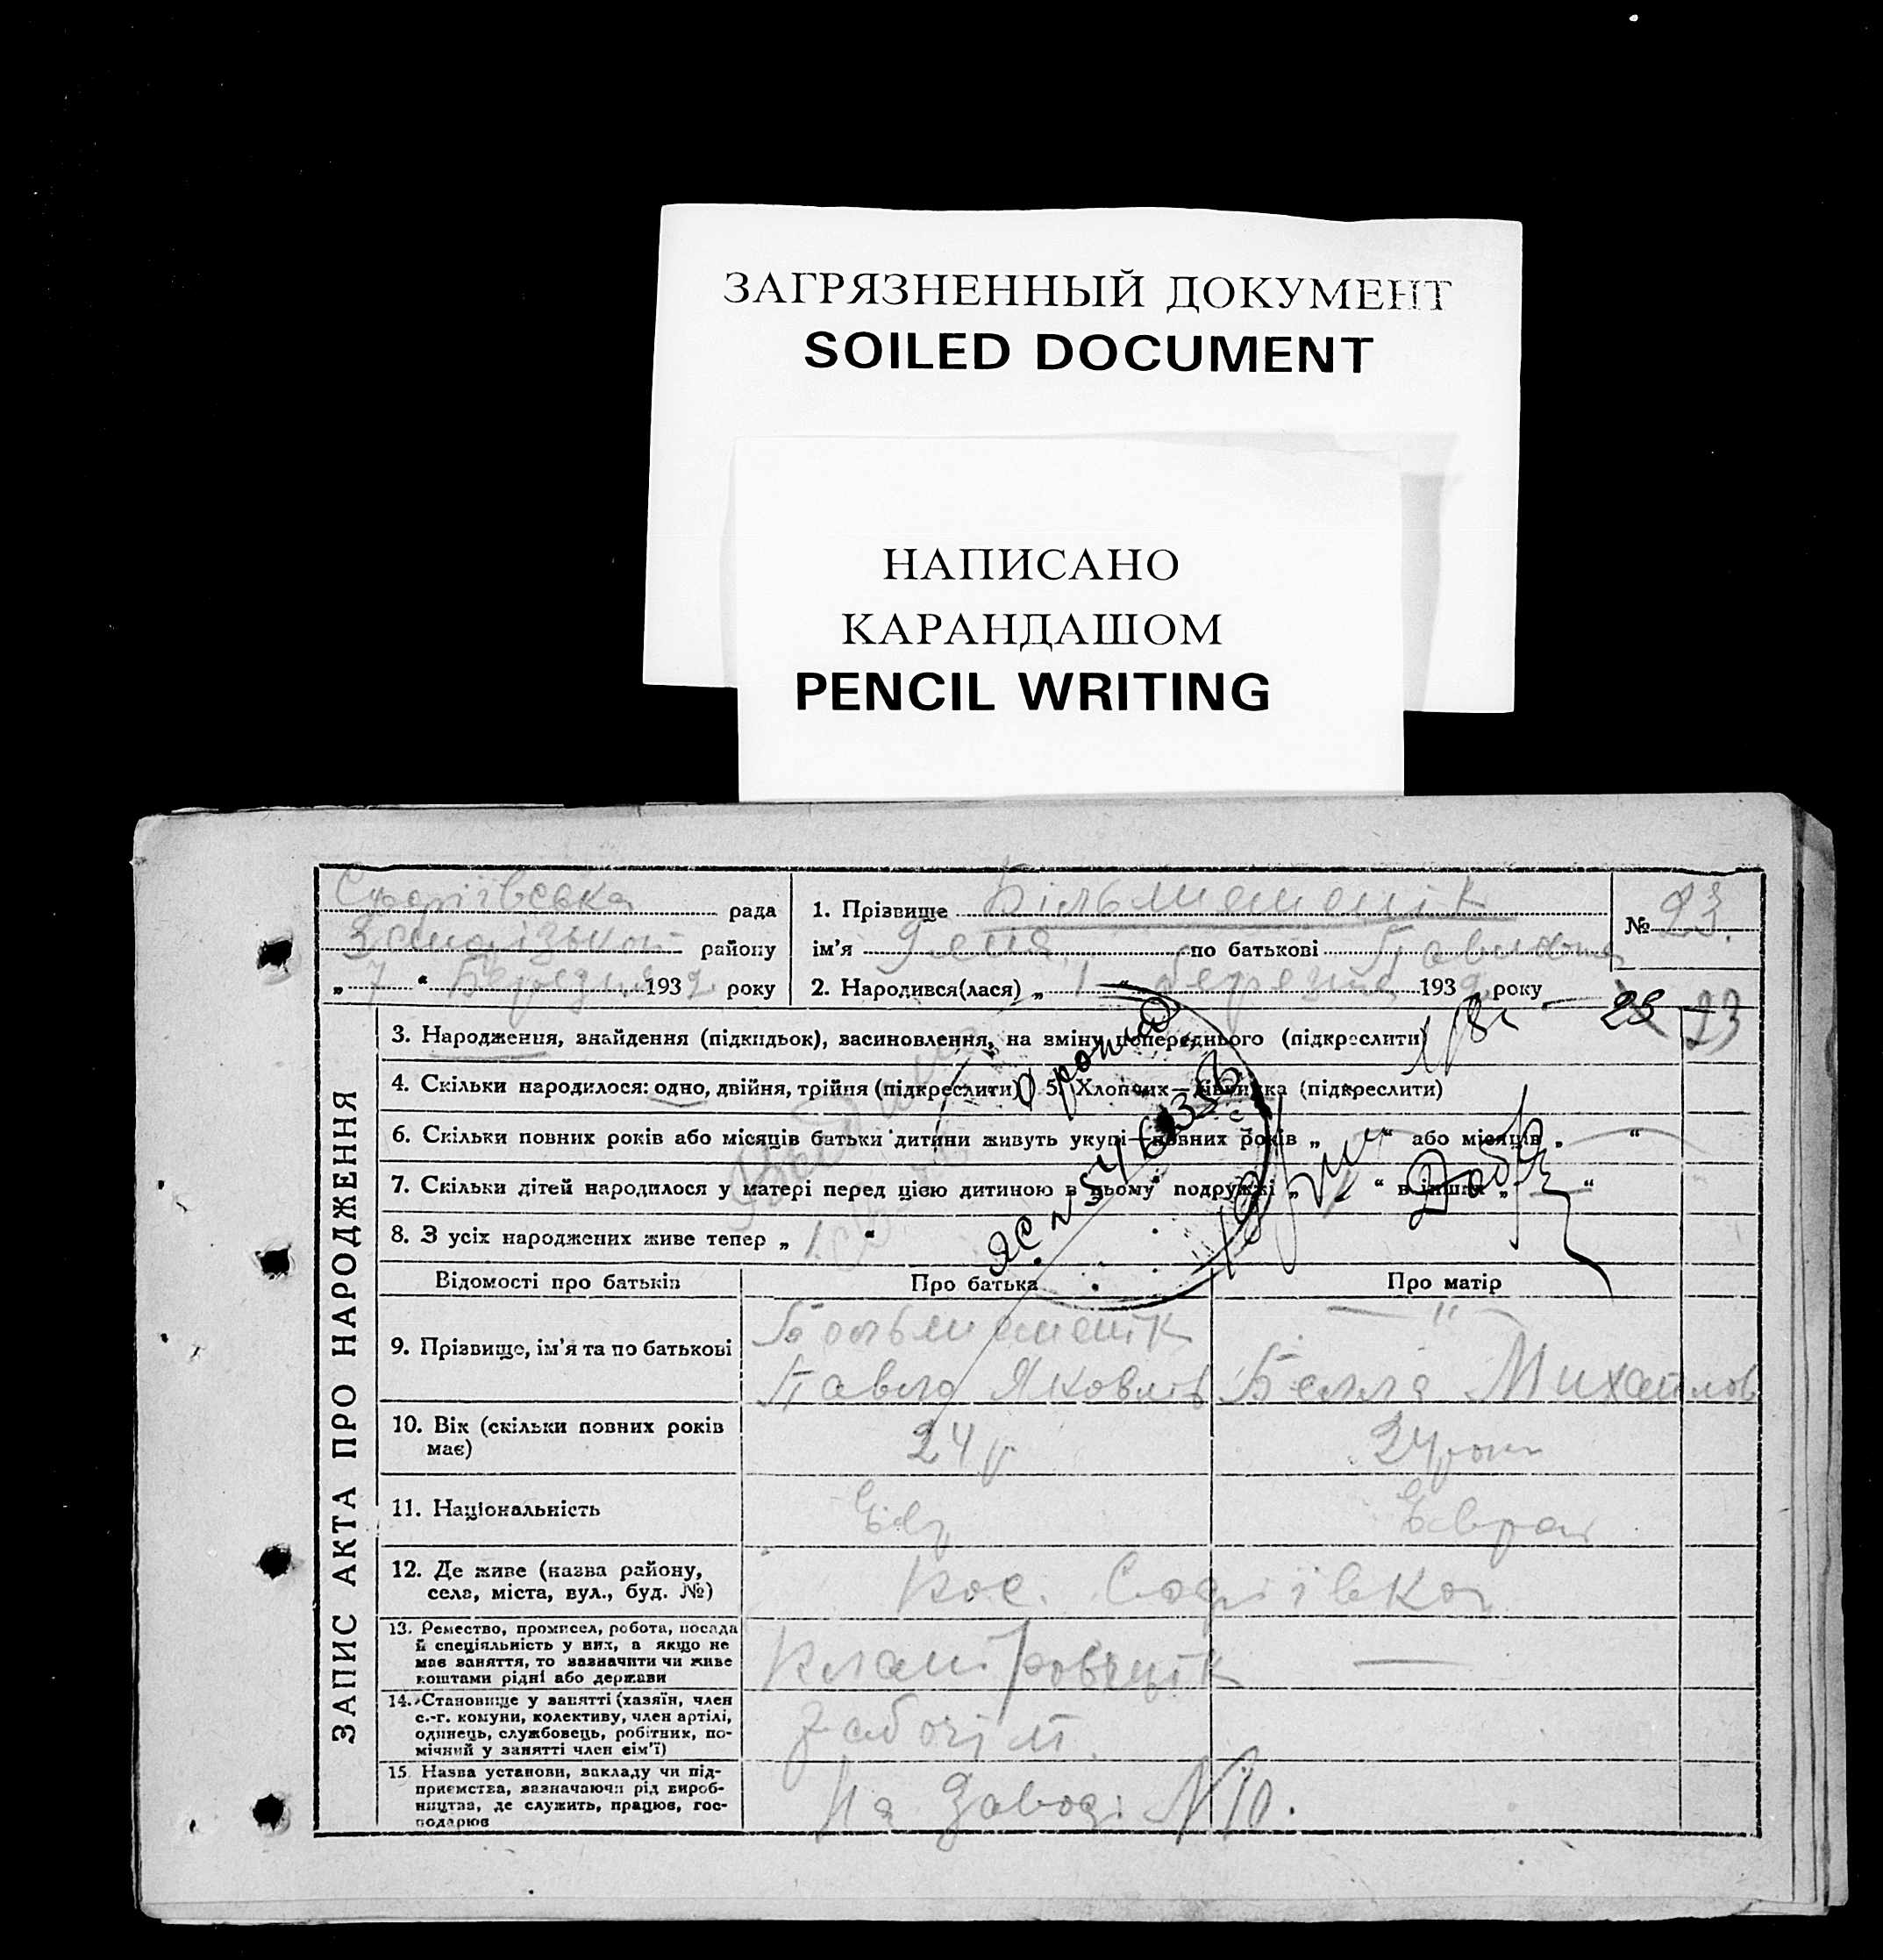 ЗАГРЯЗНЕННЫЙ ДОКУМЕНТ
SOILED DOCUMENT
НАПИСАНО
КАРАНДАШОМ
PENCIL WRITING
ЗАПИС АКТА ПРО НАРОДЖЕННЯ
Софіївська рада
району
„ 7 “ Березня 1932 року
1. Прізвище Більшменнік
ім’я по батькові Павлови
№ 23.
2. Народився(лася) „ 1 “ березня 1932 року
23
3. Народження, знайдення (підкидьок), васиновлення, на зміну попереднього (підкреслити)
4. Скільки народилося: одно, двійня, трійня (підкреслити) 5. Хлопчик—дівчинка (підкреслити)
6. Скільки повних років або місяців батьки дитини живуть укупі—повних років „ “ або місяців „ “
7. Скільки дітей народилося у матері перед цією дитиною в цьому подружжі „ “ в інших „ “
8. З усіх народжених живе тепер „ 1 “
Відомості про батьків
Про батька
Про матір
9. Прізвище, ім’я та по батькові
Павло Яковлів
„
Белла Михайлов
10. Вік (скільки повних років має)
24 р
24 роки
11. Національність
Євр
Єврей
12. Де живе (назва району, села, міста, вул., буд. №)
пос. Софіївка
13. Ремество, промисел, робота, посада й спеціяльність у них, а якщо не має заняття, то зазначити чи живе коштами рідні або держави
—
14. Становище у занятті (хазяїн, член с.-г. комуни, колективу, член артілі, одинець, службовець, робітник, помічний у занятті член сім’ї)
15. Назва установи, закладу чи підприємства, зазначаючи рід виробництва, де служить, працює, господарює
На Заводі №10.